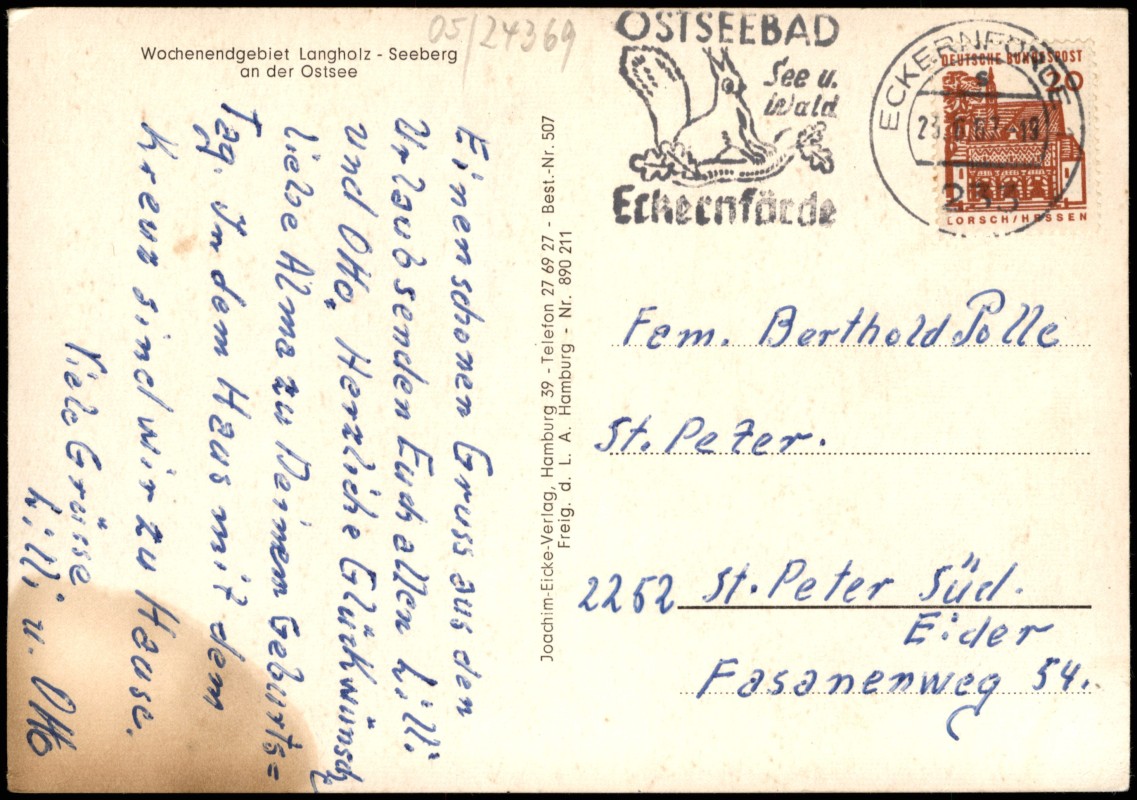 05/24369
Wochenendgebiet Langholz - Seeberg
an der Ostsee
Einen schönen Gruss aus den
Urlaub senden Euch allen Lilli
und Otto. Herzliche Glückwünsch
liebe Alma zu Deinem Geburts=
Tag. In dem Haus mit dem
Kreuz sind wir zu Hause.
Viele Grüsse
Lilli u. Otto
Joachim-Eicke-Verlag, Hamburg 39 - Telefon 27 69 27 - Best.-Nr. 507
Freig. d. L. A. Hamburg - Nr. 890 211
OSTSEEBAD
See u.
Wald
Eckernförde
ECKERNFÖRDE
s
23.6.67-19
233
DEUTSCHE BUNDESPOST
20
LORSCH/HESSEN
Fam. Berthold Polle
St. Peter.
2252 St. Peter Süd.
Eider
Fasanenweg 54.